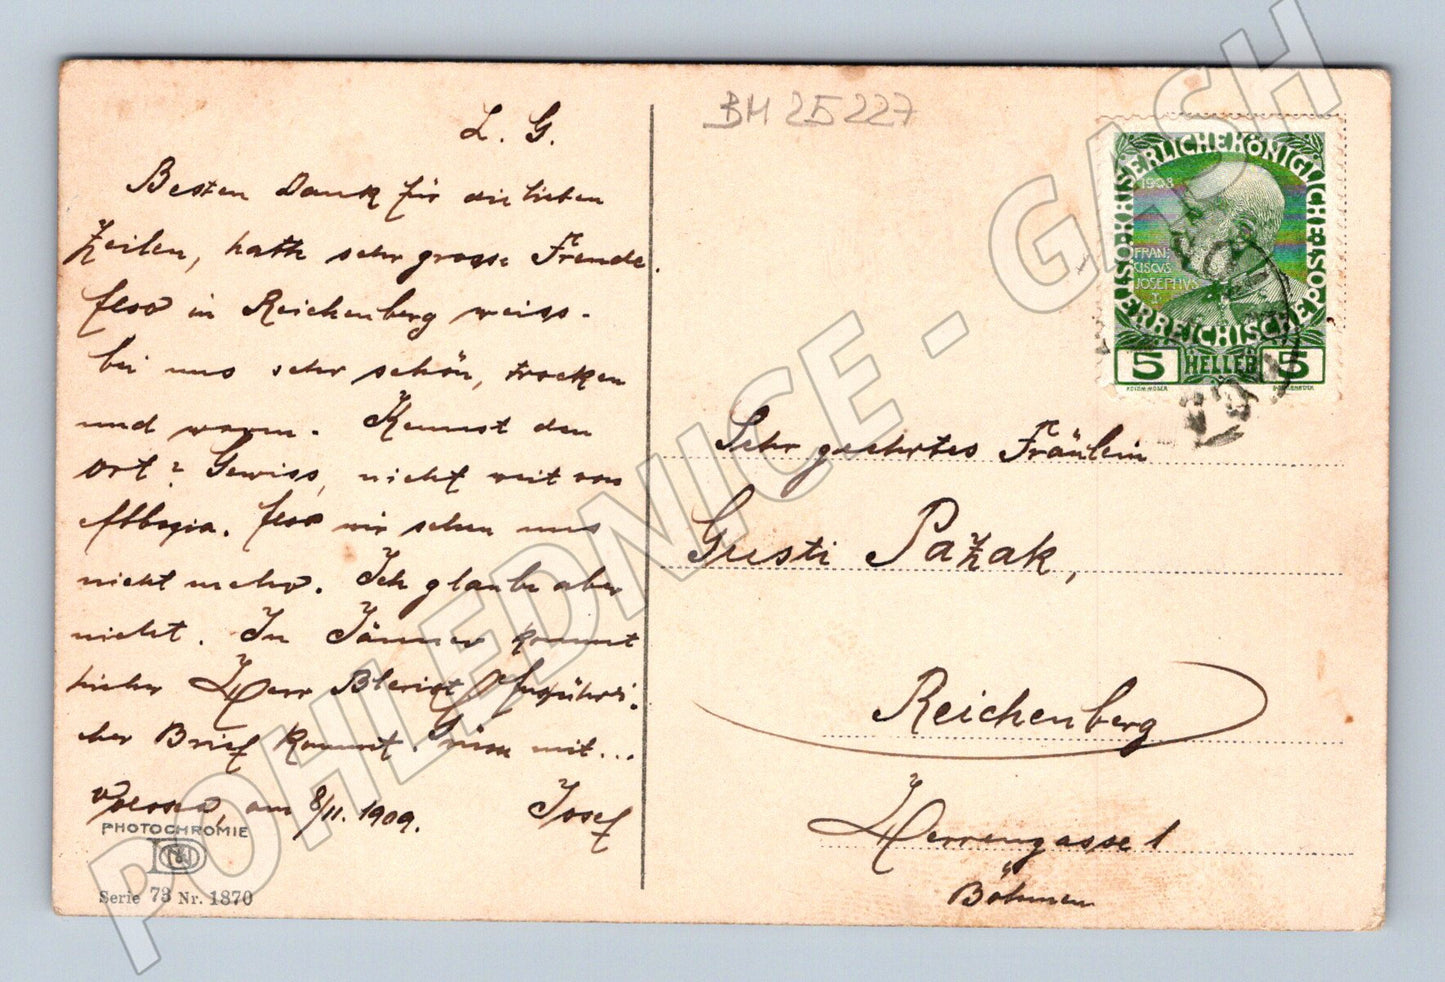 L. G.
Besten Dank für die lieben
Zeilen, hatte sehr grosse Freude.
Also in Reichenberg weiss.
bei uns sehr schön, trocken
und warm. Kennst den
Ort? Gewiss, nicht weit von
Abbazia. Also wir sehen uns
nicht mehr. Ich glaube aber
nicht. In Jänner kommt
hieher Herr Bleriot. Ausführli-
cher Brief kommt. Grüsse mit...
Volosca, am 8/11. 1909. Josef
PHOTOCHROMIE
Serie 73 Nr. 1870
BM 25227
KAISERLICHEKÖNIGLICHE
ÖSTERREICHISCHE POST
1908
FRAN
CISCVS
JOSEPHVS
I
5 HELLER 5
KOLOM. MOSER
Sehr geehrtes Fräulein
Gusti Pažak,
Reichenberg
Herrengasse 1
Böhmen
POHLEDNICE - GASH